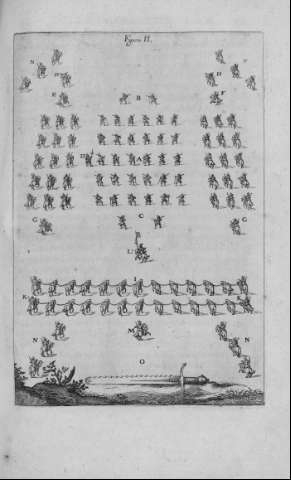 Figura II.
N F
H H
E F
B
D
G C G
L
I
K
N M N
O